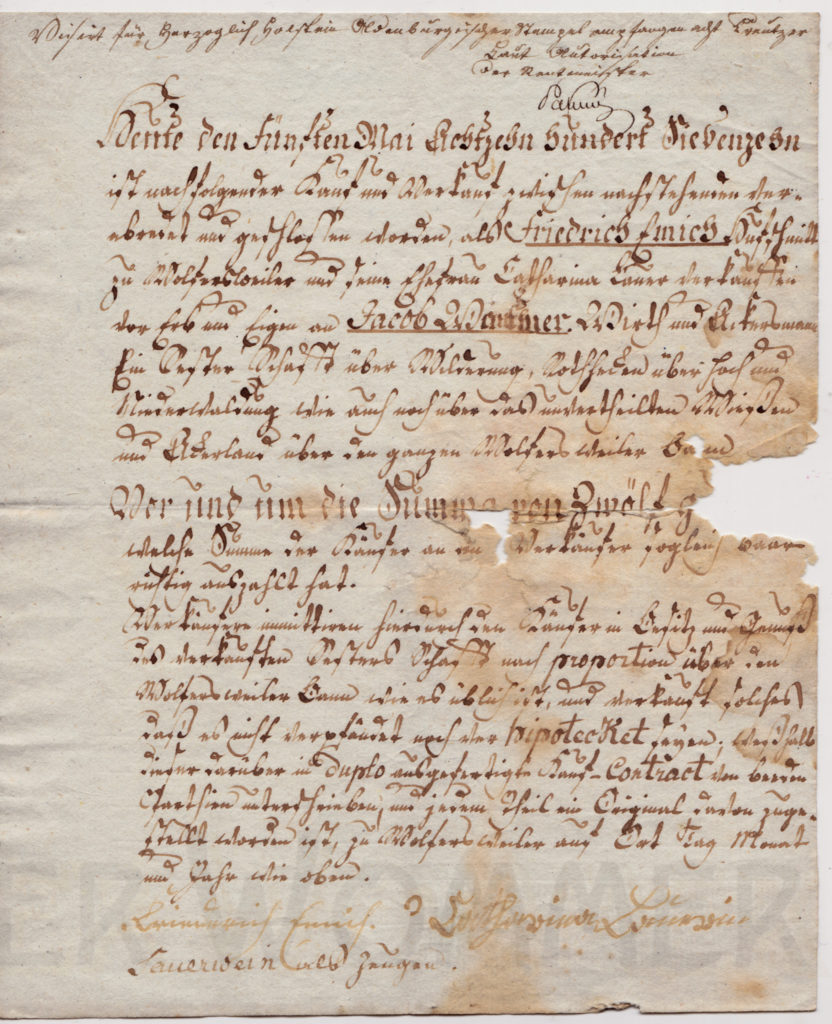 Visirt für Herzoglich Holstein Oldenburgischer Stempel empfangen acht Creutzer
Laut Autorisation
der Rentmeister
Heute den fünften Mai Achtzehn hundert Siebenzehn
ist nachfolgender Kauf und Verkauf zwischen nachstehenden ver-
abredet und geschlossen worden, als Friedrich Emich Hufschmitt
zu Wolfersweiler und seine Ehefrau Catharina Lauer verkauffen
vor Erb und Eigen an Jacob Wommer. Wirth und Ackersmann
Ein Sester Schafft über Wilderung, Rothhecken über hoch und
Niederwaldung wie auch noch über das unvertheilten Wießen
und Ackerland über den ganzen Wolfersweiler Bann
Vor und um die Summa von Zwölf g
welche Summe der Käufer an den Verkäufer sogleich baar
richtig auszahlt hat.
Verkäufere immittiren hierdurch den Käufer in Besitz und Genuß
des verkauften Sesters Schafft nach proportion über den
Wolfersweiler Bann wie es üblich ist, und verkauft solches
daß es nicht verpfändet noch ver hipotecket seyen. weßhalb
dieser darüber in Duplo ausgefertigte Kauf-Contract von beeden
Parthien unterschrieben, und jedem Theil ein Original davon zuge-
stellt worden ist, zu Wolfersweiler auf Ort Tag Monat
und Jahr wie oben.
Friedrich Emich. Catharina Lauerin
Lauerwein als Zeugen.